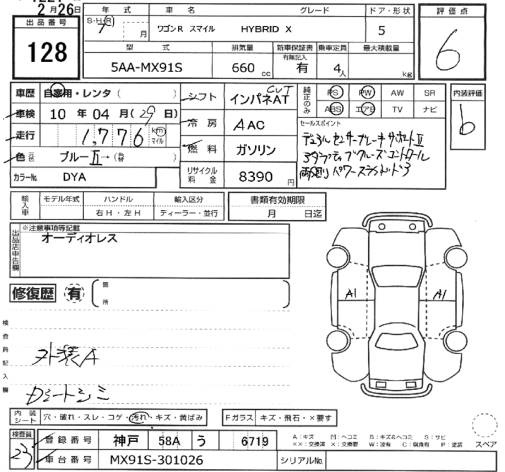 2月26日
出品番号
128
年式
S・H・R
7
月
車名
ワゴンR スマイル HYBRID X
グレード
ドア・形状
5
型式
5AA-MX91S
排気量
660 cc
新車保証書
有無記入
有
乗車定員
4人
最大積載量
kg
評価点
6
車歴
自家用・レンタ
車検
10年04月(29)日
走行
1,776 km マイル
色
ブルーⅡ
カラーNo.
DYA
シフト
インパネAT
CVT
冷房
AAC
燃料
ガソリン
リサイクル料金
8390
純正のみ
PS PW AW SR
ABS エアB TV ナビ
セールスポイント
デュアルセンサーブレーキサポートⅡ
アダプティブクルーズコントロール
両側パワースライドドア
内装評価
b
輸入車
モデル年式
ハンドル
右H・左H
輸入区分
ディーラー・並行
書類有効期限
月 日迄
出品店申告欄
※注意事項等記載
オーディオレス
修復歴
有
箇所
検査員記入欄
外装A
Dシートシミ
A1
A1
内装シート
穴・破れ・スレ・コゲ・汚れ・キズ・黄ばみ
Fガラス
キズ・飛石・×要す
検査員
23
登録番号
神戸 58A う 6719
車台番号
MX91S-301026
シリアルNo.
A：キズ
M：ヘコミ
B：キズ&ヘコミ
S：サビ
XX：交換済
X：交換要
W：波有
C：腐食有
P：塗装
スペア